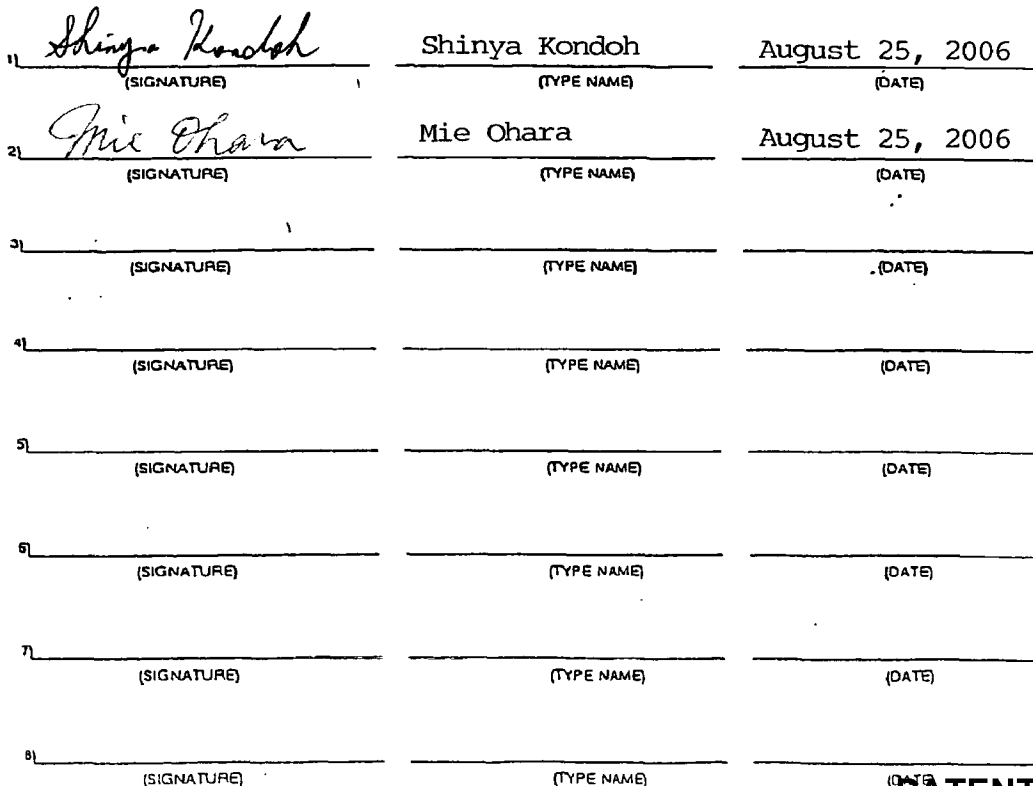 1) Shinya Kondoh Shinya Kondoh August 25, 2006
(SIGNATURE) (TYPE NAME) (DATE)
2) Mie Ohara Mie Ohara August 25, 2006
(SIGNATURE) (TYPE NAME) (DATE)
3)
(SIGNATURE) (TYPE NAME) (DATE)
4)
(SIGNATURE) (TYPE NAME) (DATE)
5)
(SIGNATURE) (TYPE NAME) (DATE)
6)
(SIGNATURE) (TYPE NAME) (DATE)
7)
(SIGNATURE) (TYPE NAME) (DATE)
8)
(SIGNATURE) (TYPE NAME) (DATE) PATENT